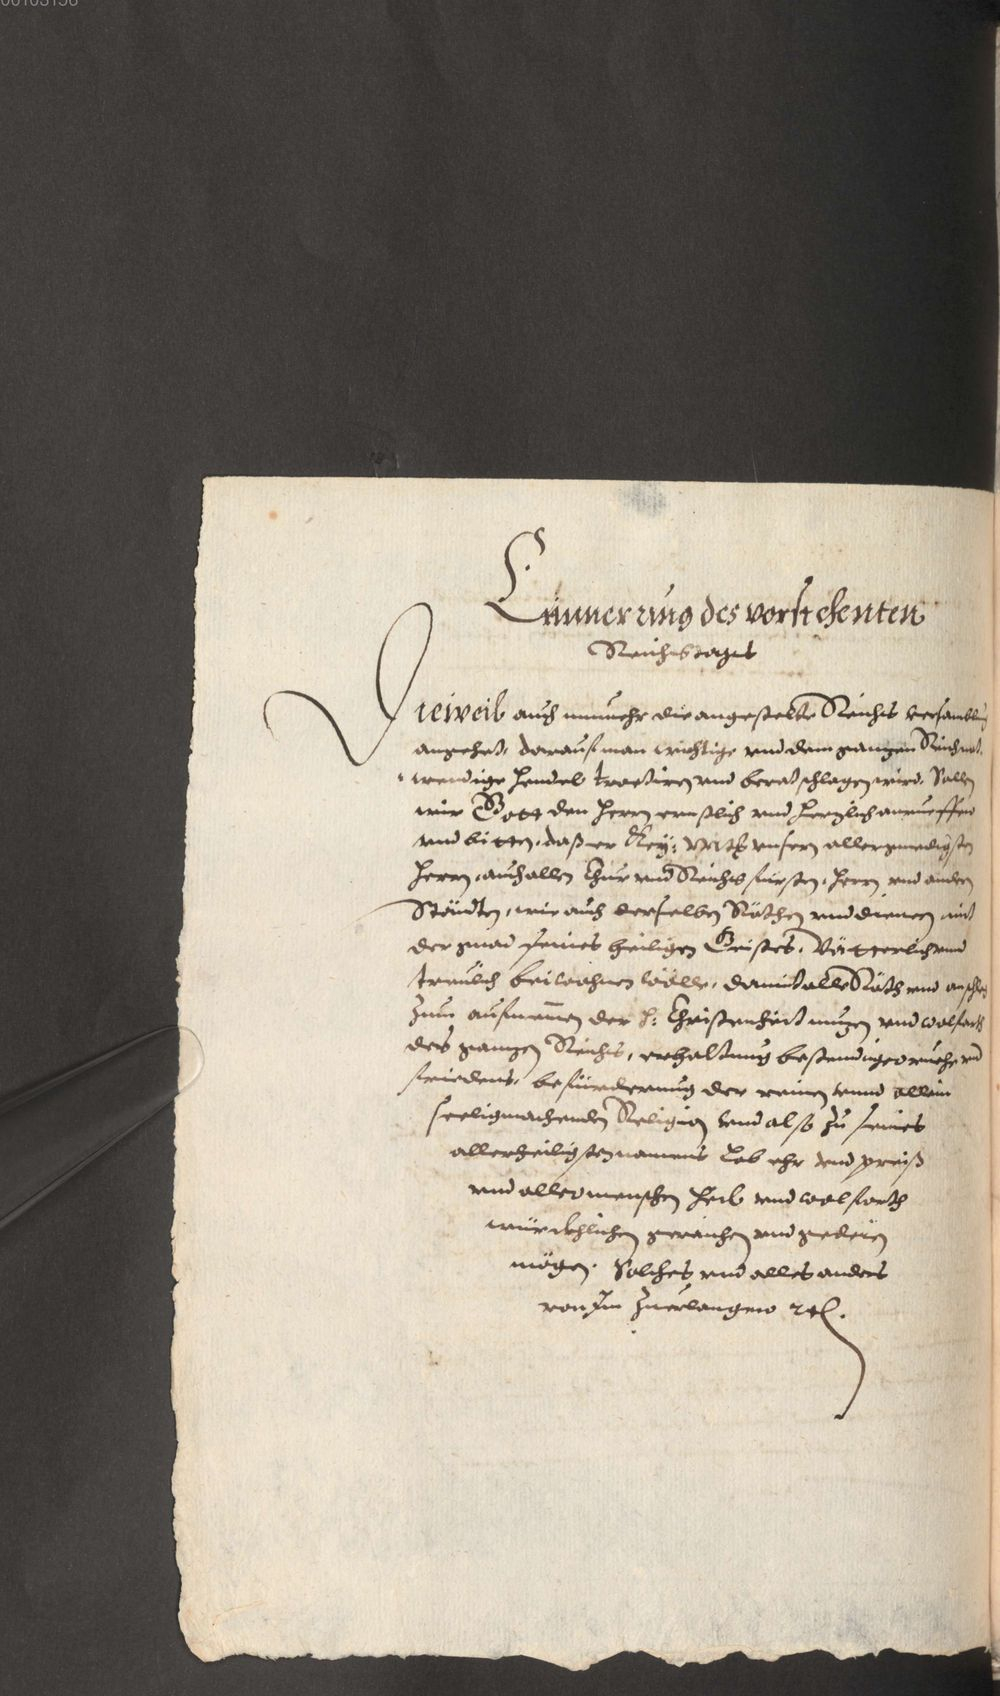 Erinnerung des vorstehenten
Reichstages
Dieweil auch nunmehr die angestelte Reichs versamblung
angehet, darauf man wichtige vnd dem gantzen Reich not-
wendige hendel tractiren vnd beratschlagen wird. Sollen
wir Gott den Herrn ernstlich vnd hertzlich anrueffen
vnd bitten, daß er Key: Mtt: vnsern allergnedigsten
Herrn, auch allen Chur vnd Reichs fürsten, Herrn vnd andern
Ständten, wie auch derselben Räthen vnd dienern mit
der gnad seines heiligen Geistes, Vätterlich vnd
treulich beiwohnen wölle, damit alle Räth vnd anschleg
zum aufnemen der h: Christenheit nutzen vnd wolfarth
des gantzen Reichs, erhaltung bestendiger ruehe vnd
friedens, befürderung der reinen vnnd allein
seeligmachenden Religion vnd also zu seines
allerheiligsten namens Lob ehr vnd preiß
vnd aller menschen heil vnd wolfarth
würcklichen gereichen vnd gedeien
mögen. Solches vnd alles anders
von Im zuerlangen etc.